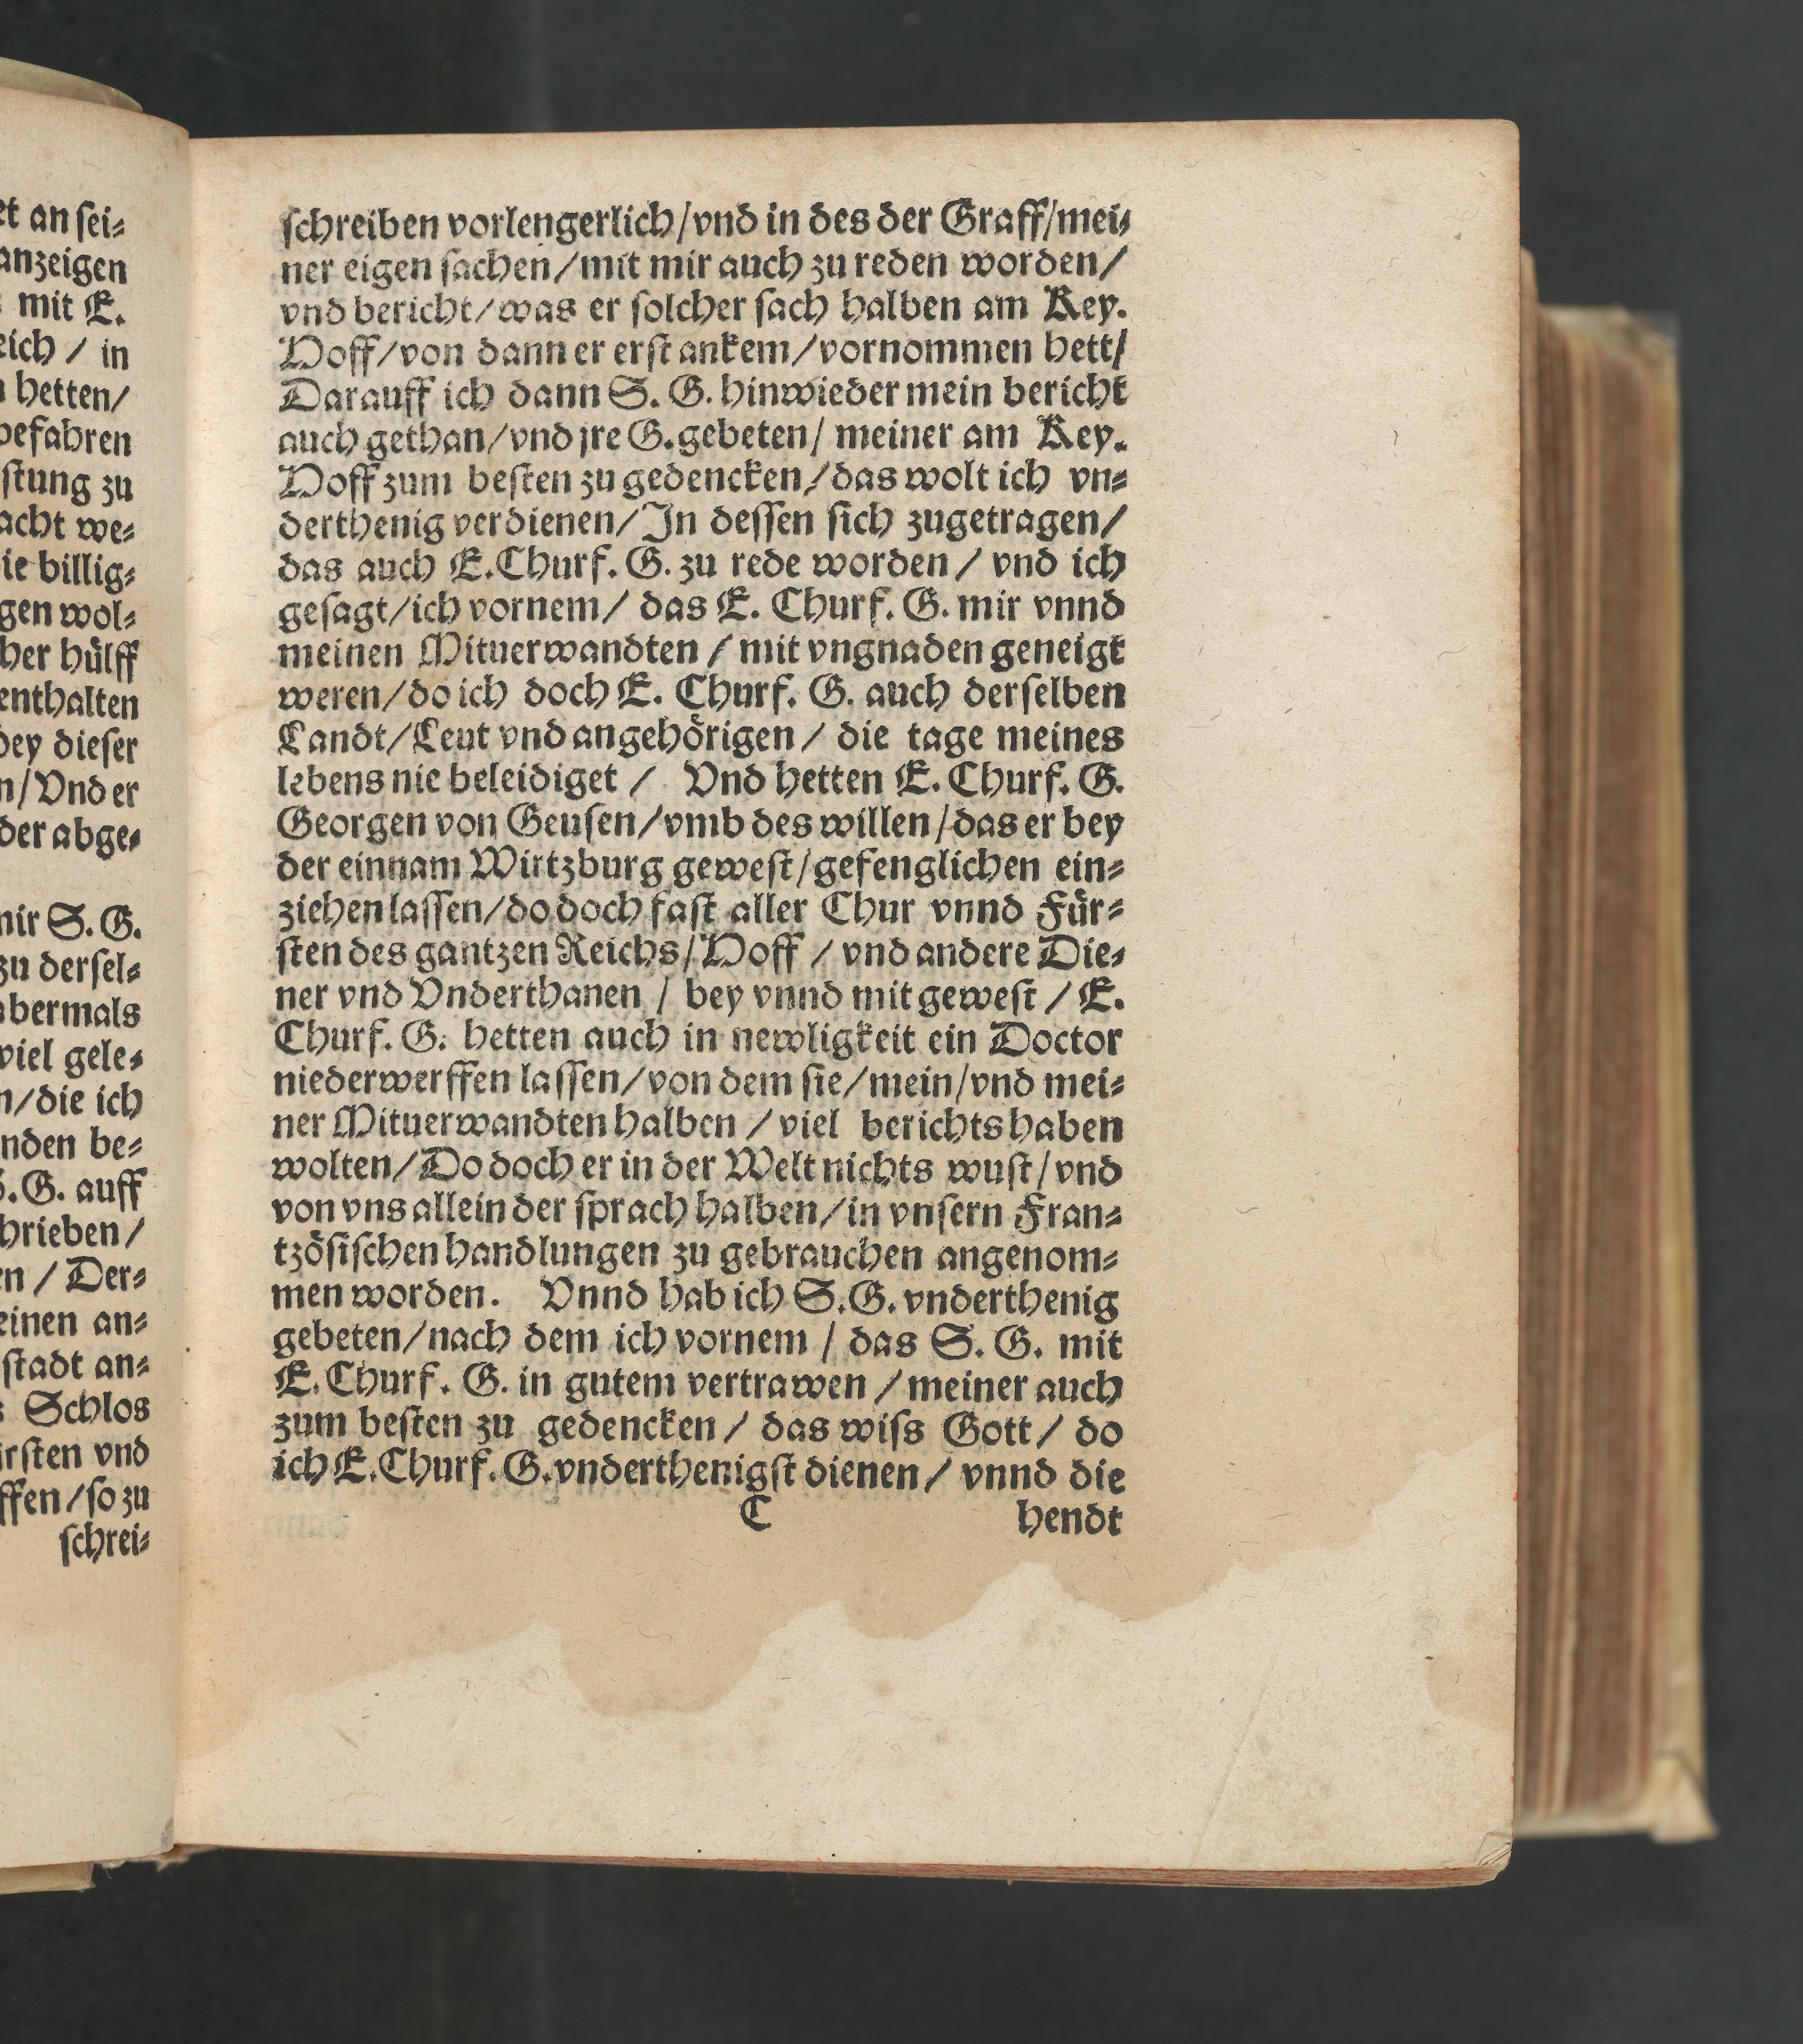 et an sei⸗
anzeigen
mit E.
eich / in
hetten/
befahren
stung zu
acht we⸗
ie billig⸗
gen wol⸗
her hülff
enthalten
bey dieser
n/Vnd er
der abge⸗
mir S. G.
zu dersel⸗
abermals
viel gele⸗
n/die ich
nden be⸗
G. auff
hrieben/
en / Der⸗
einen an⸗
stadt an⸗
Schlos
irsten vnd
ffen/so zu
schrei⸗
schreiben vorlengerlich/vnd in des der Graff/mei⸗
ner eigen sachen/mit mir auch zu reden worden/
vnd bericht/was er solcher sach halben am Key.
Hoff/von dann er erst ankem/vornommen hett/
Darauff ich dann S. G. hinwieder mein bericht
auch gethan/vnd jre G. gebeten/ meiner am Key.
Hoff zum besten zu gedencken/das wolt ich vn⸗
derthenig verdienen/In dessen sich zugetragen/
das auch E. Churf. G. zu rede worden / vnd ich
gesagt/ich vornem/ das E. Churf. G. mir vnnd
meinen Mituerwandten / mit vngnaden geneigt
weren/do ich doch E. Churf. G. auch derselben
Landt/Leut vnd angehörigen / die tage meines
lebens nie beleidiget / Vnd hetten E. Churf. G.
Georgen von Geusen/vmb des willen/das er bey
der einnam Wirtzburg gewest/gefenglichen ein⸗
ziehen lassen/do doch fast aller Chur vnnd Für⸗
sten des gantzen Reichs/Hoff / vnd andere Die⸗
ner vnd Vnderthanen / bey vnnd mit gewest / E.
Churf. G. hetten auch in newligkeit ein Doctor
niederwerffen lassen/von dem sie/mein/vnd mei⸗
ner Mituerwandten halben / viel berichts haben
wolten/Do doch er in der Welt nichts wust/vnd
von vns allein der sprach halben/in vnsern Fran⸗
tzösischen handlungen zu gebrauchen angenom⸗
men worden. Vnnd hab ich S. G. vnderthenig
gebeten/nach dem ich vornem / das S. G. mit
E. Churf. G. in gutem vertrawen / meiner auch
zum besten zu gedencken / das wiss Gott / do
ich E. Churf. G. vnderthenigst dienen / vnnd die
C hendt